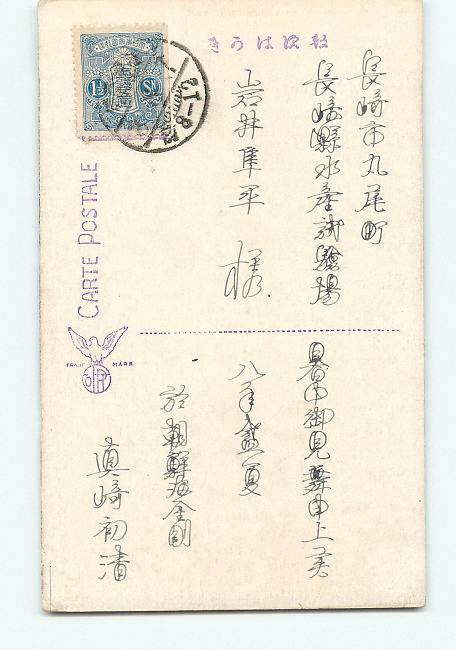 きかうは便郵
長崎市丸尾町
長崎縣水産試験場
岩井隼平様
暑中御見舞申上候
八年盛夏
於朝鮮海金剛
真崎初清
1½ Sn
CARTE POSTALE
TRADE MARK